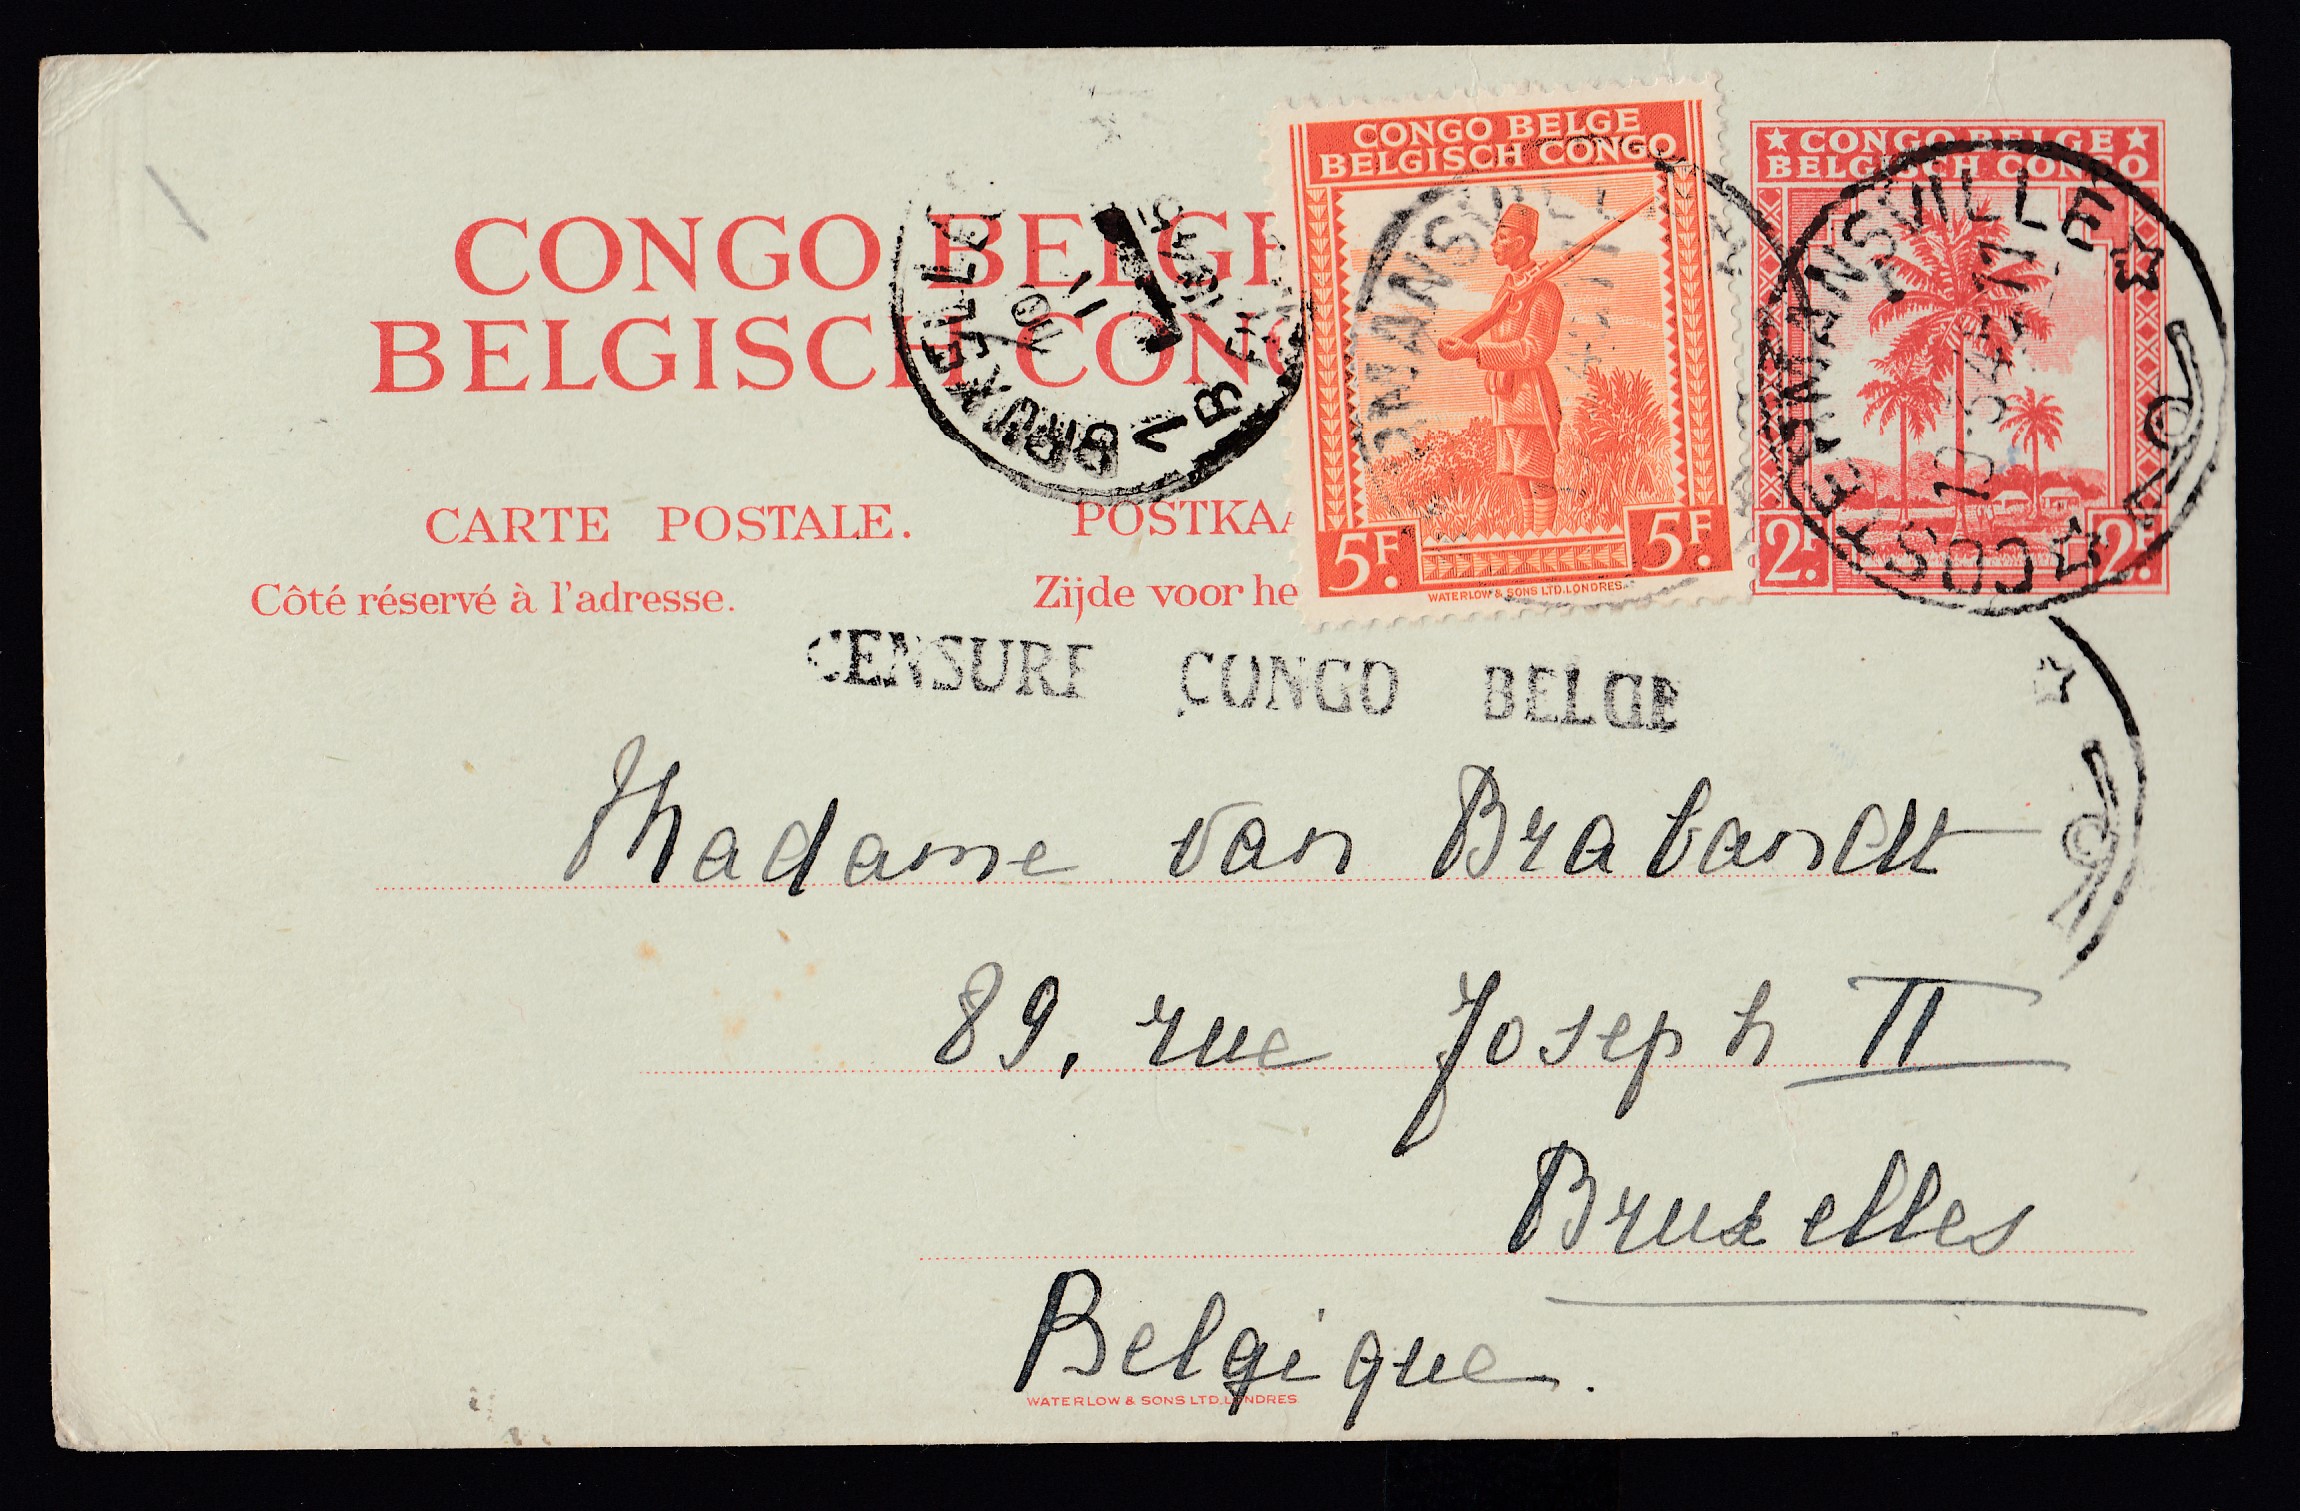 CONGO BELGE
BELGISCH CONGO
5F. 5F.
WATERLOW & SONS LTD. LONDRES.
★ CONGO BELGE ★
BELGISCH CONGO
2F. 2F.
COSTERMANSVILLE
CONGO BELG
BELGISCH CONG
BRUXELLES
CARTE POSTALE. POSTKAA
Côté réservé à l'adresse. Zijde voor he
CENSURE CONGO BELGE
Madame van Brabandt
89, rue Joseph II
Bruxelles
Belgique.
WATERLOW & SONS LTD. LONDRES